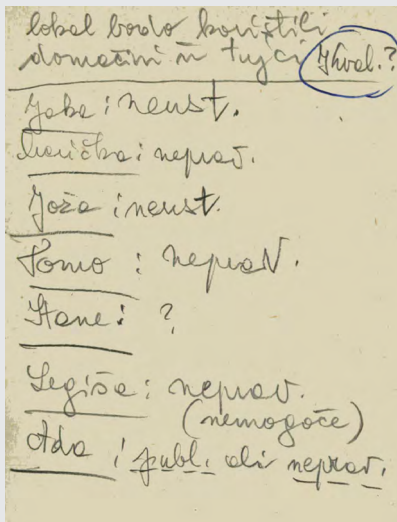 lokal bodo koristili
domačini in tujci Kval.?
Jaka : neust.
Marička : neprav.
Joža : neust.
Tomo : neprav.
Stane : ?
Legiša : neprav.
(nemogoče)
Ada : publ. ali neprav.